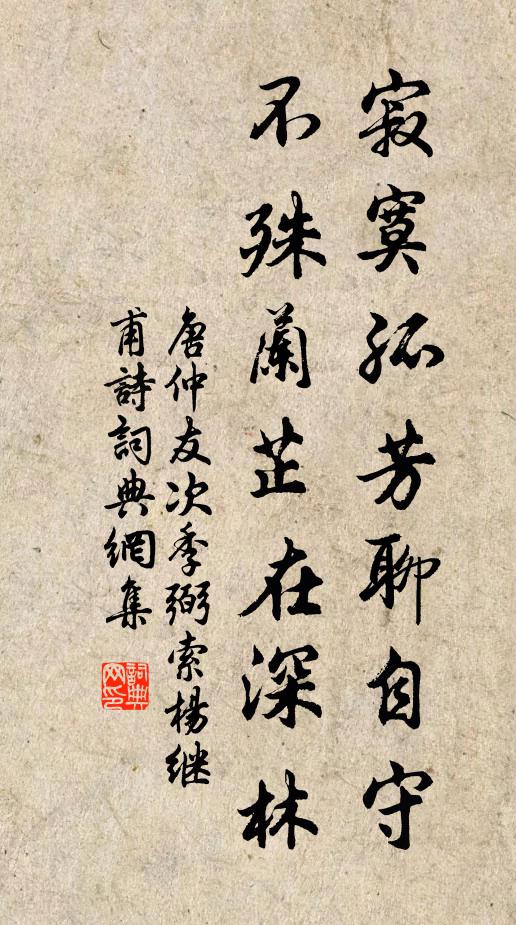 寂寞孤芳聊自守
不殊蘭芷在深林
唐仲友次季弼索楊继
甫詩詞典網集
詞典
网印